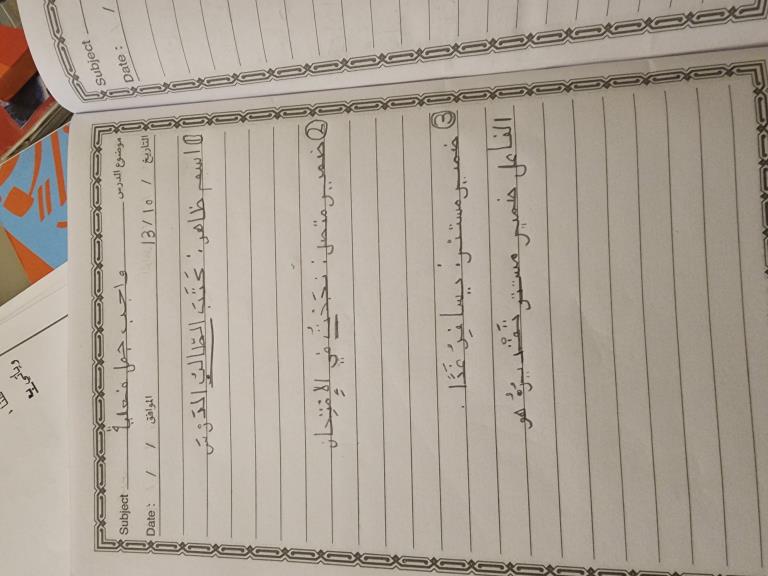 Subject
Date : /
موضوع الدرس واجب جمل فعلية Subject
التاريخ / 13/10 الموافق / / Date :
① اسم ظاهر : كَتَبَ الطَّالِبُ الدَّرْسَ
② ضمير متصل : نَجَحْتُ فِي الامْتِحَانِ
③ ضمير مستتر : يسافِرُ غَدًا .
الفاعل ضمير مستتر تَقْديرُهُ هو